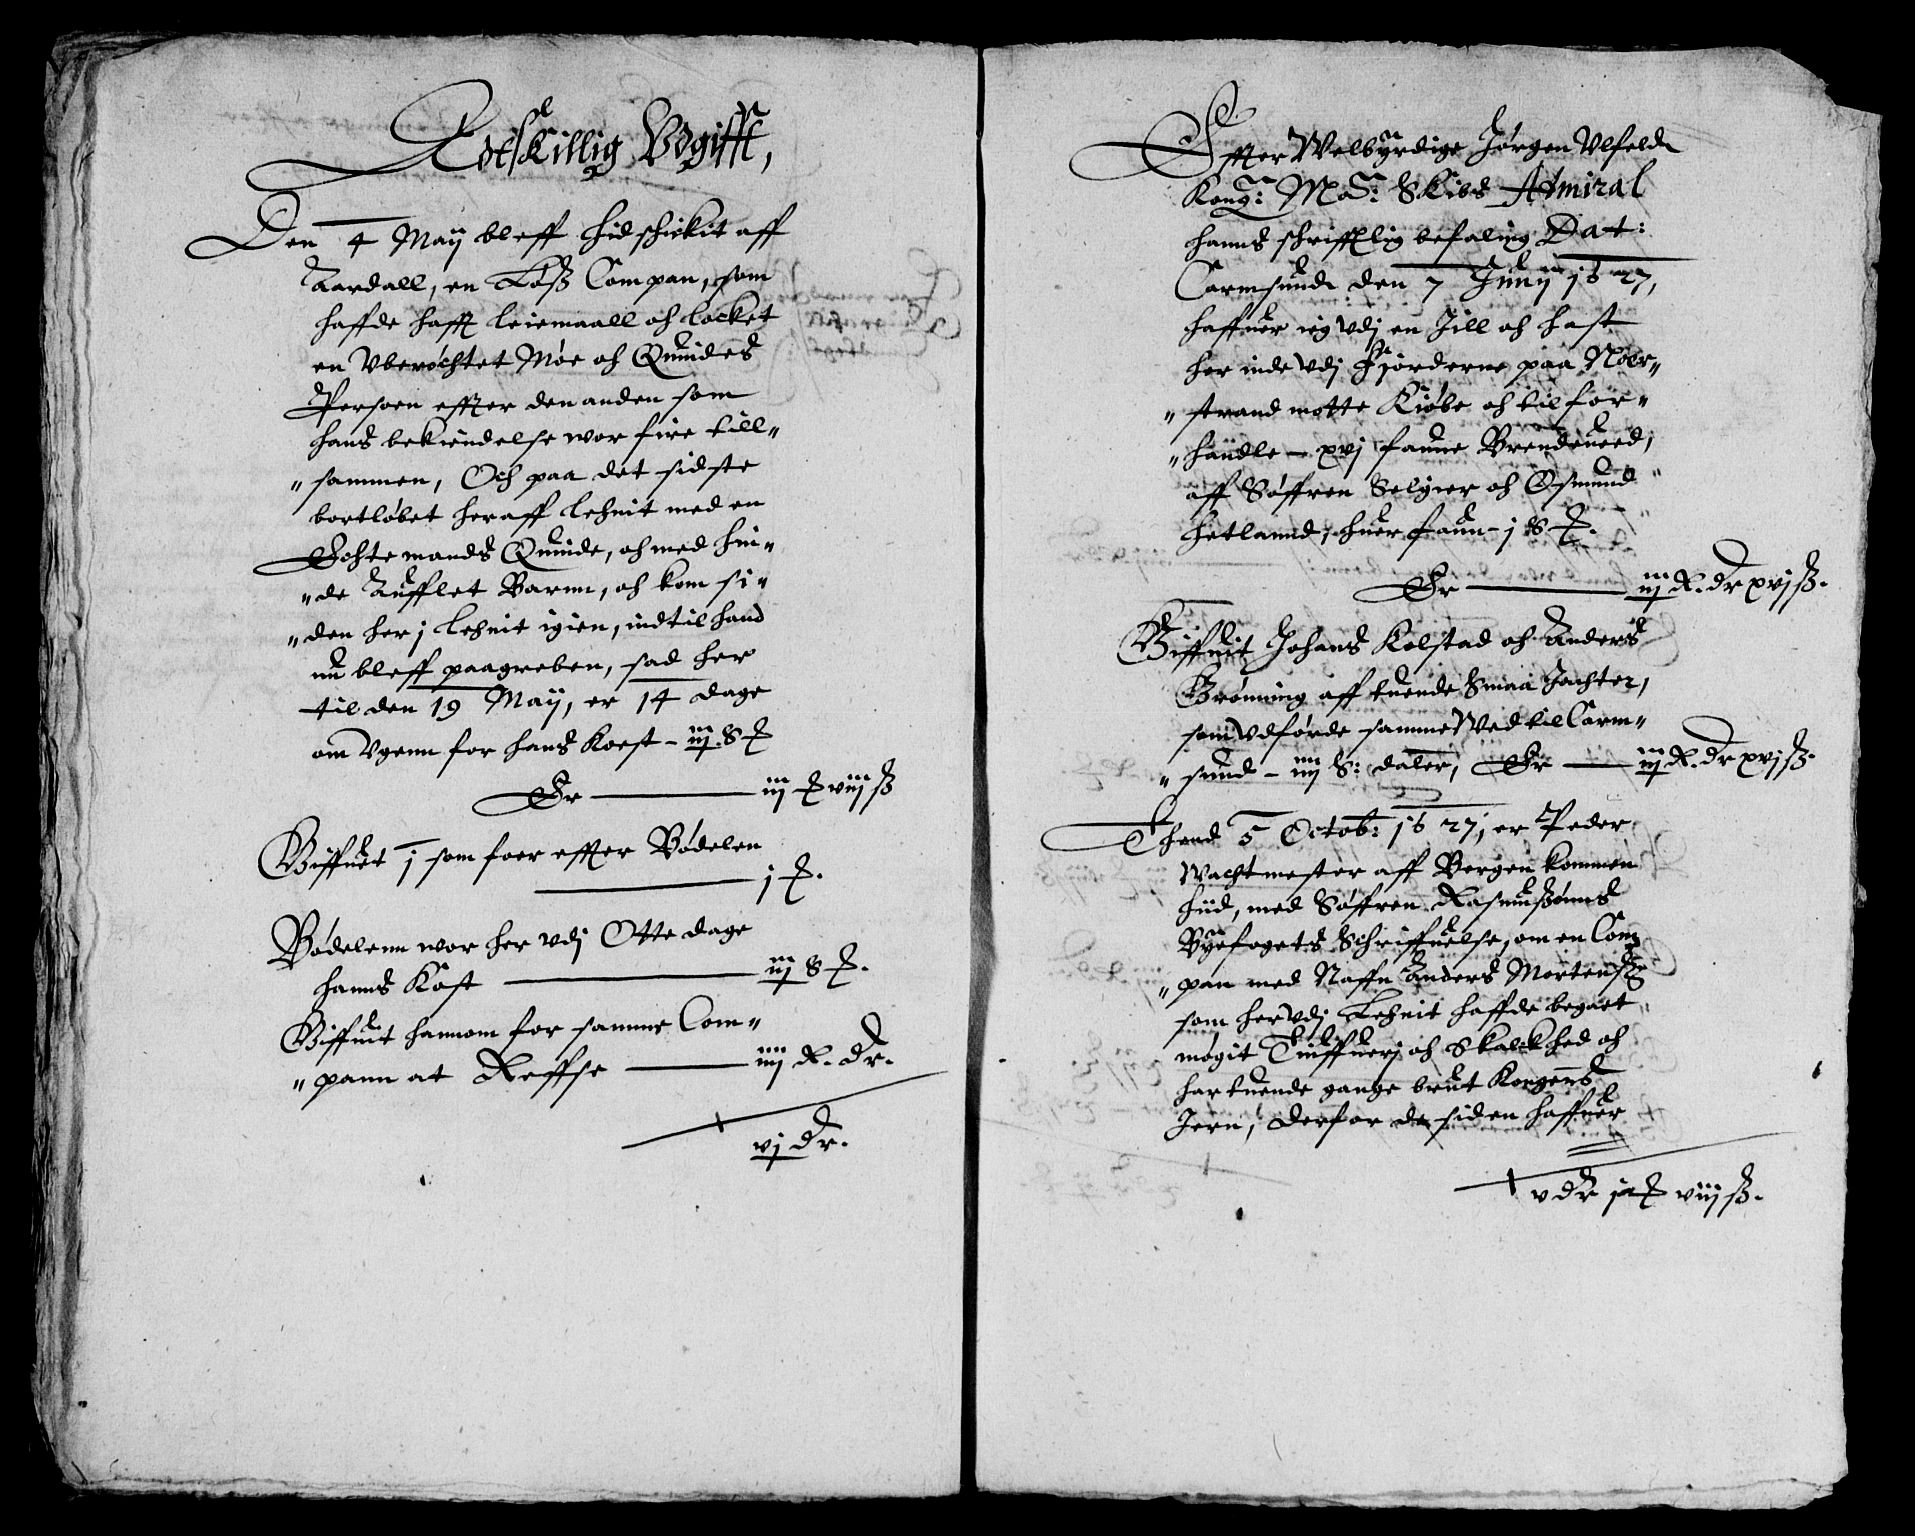 Adtskillig Vdgifft,
Den 4 Maij bleff hid schickit aff
Aardall, en Løß Compan, som
haffde hafft leiemaall och locket
en vberøchtet Møe och Quindes
Persoen effter den anden som
hans bekiendelse wor fire till„
„sammen, Och paa det sidste
bortløbet her aff Lehnit med en
Echte mands Quinde, och med hin„
„de Aufflet Barnn, och kom si„
„den her j Lehnit igien, indtil hand
nu bleff paagreben, sad her
til den 19 Maij, er 14 dage
om Vgenn for hans Koest - iij. S
Er iij viij ß
Giffuet j som foer effter Bødelen
j
Bødelenn wor her vdj Otte dage
hanns Kost iij S
Giffuit hannom for samme Com„
„pann at Reffse iiij R. dr.
vj dr.
Effter Welbyrdige Jørgen Vlfeldt
Kong: Ma: Skibs Admiral
hanns schrifftlig befaling Dat:
Carmsund den 7 Junij 1627,
haffuer ieg vdj en Jill och hast
her inde vdj Fjorderne paa Noer„
„strand motte Kiøbe och til for„
„handle - xvj faune Brendeueed,
aff Søffren Selgier och Osmund
Hetlannd, huer faun - j S
Er iij R. dr xvj ß.
Giffuit Johans Kolstad och Anders
Grønning aff tuende Smaa Jachter,
som vdførde samme Wed til Carm„
„sund - iiij S: daler, Er iij R. dr xvj ß.
Thend 5 Octob: 1627, er Peder
Wachtmester aff Bergen kommen
hiid, med Søffren Rasmußønns
Byefogets Schriffuelse, om en Com
„pan med Naffn Anders Mortensß
som her vdj Lehnit haffde begaet
møgit Tiuffuerj och Skalckhed och
har tuende gange brut Kongens
Jern, Derfor de siden haffuer
v dr j viij ß.